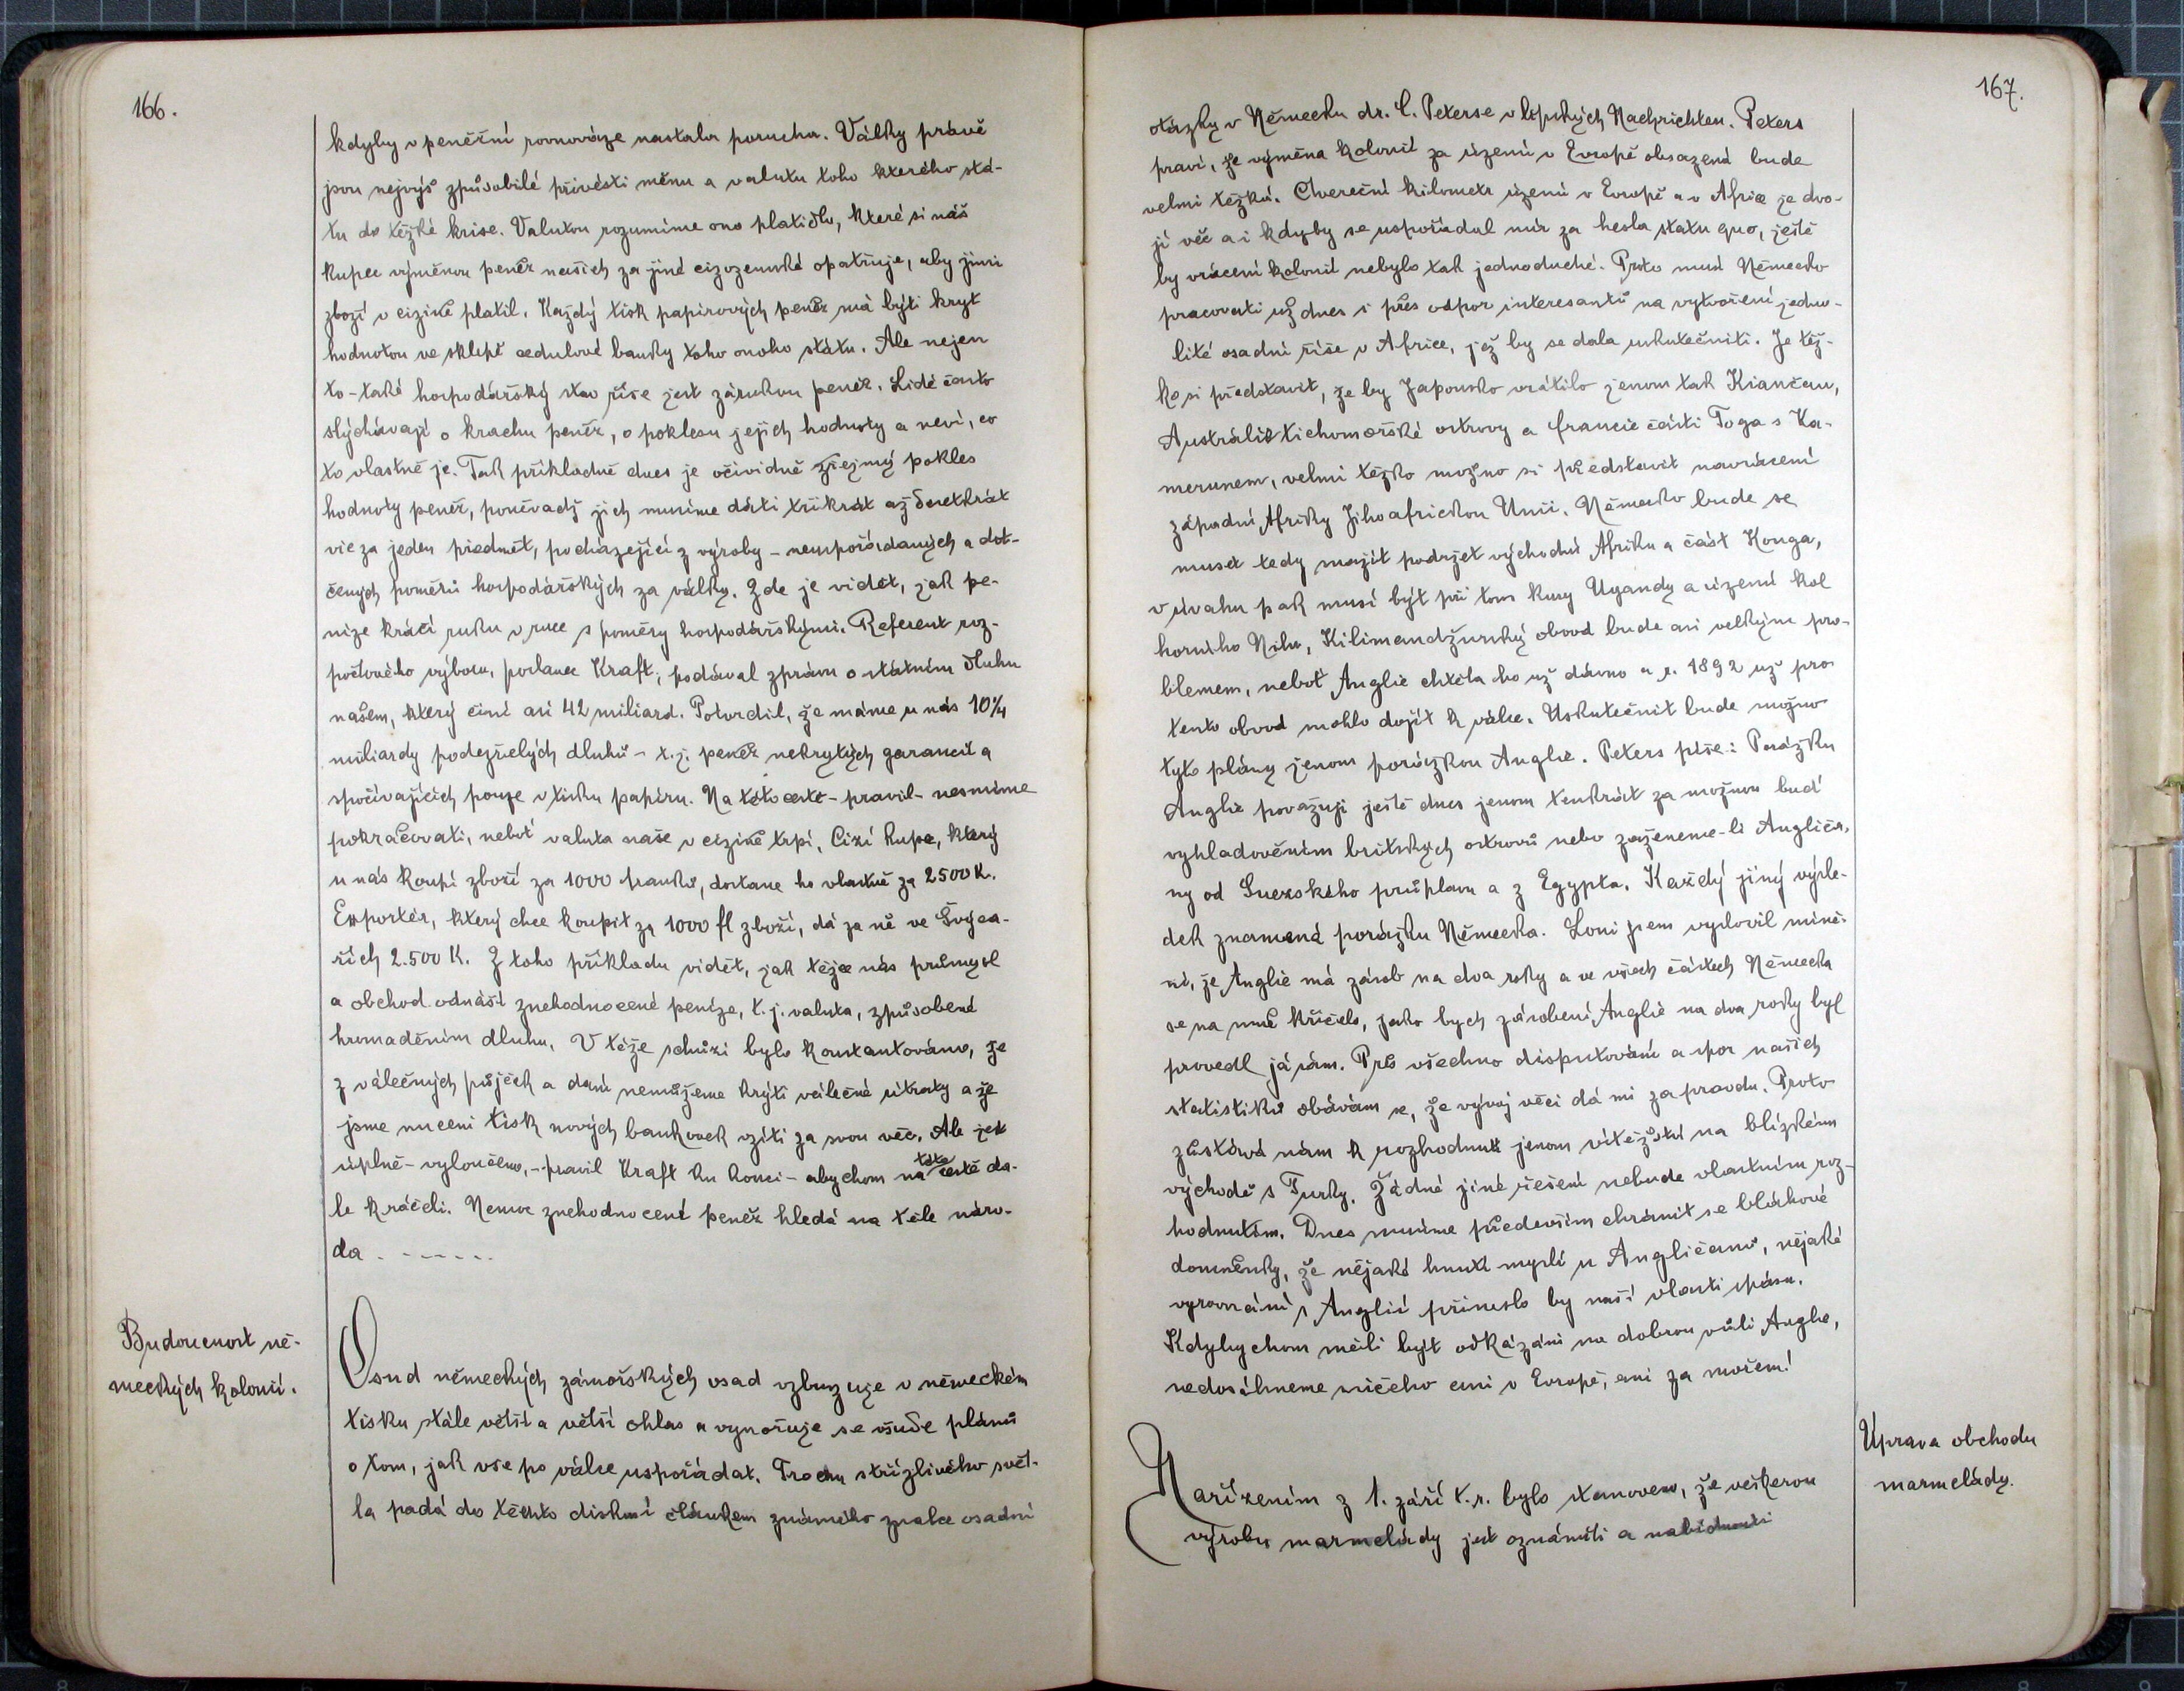 166.
kdyby v peněžní rovnováze nastala porucha. Války právě
jsou nejvýš způsobilé přivésti měnu a valutu toho kterého stá-
tu do těžké krise. Valutou rozumíme ono platidlo, které si náš
kupec výměnou peněz našich za jiné cizozemské opatřuje, aby jimi
zboží v cizině platil. Každý tisk papírových peněz má býti kryt
hodnotou ve sklepě cedulové banky toho onoho státu. Ale nejen
to - také hospodářský stav říše jest zárukou peněz. Lidé často
slýchávají o krachu peněz, o poklesu jejich hodnoty a neví, co
to vlastně je. Tak příkladně dnes je očividně zřejmý pokles
hodnoty peněz, poněvadž jich musíme dáti třikrát až desetkrát
víc za jeden předmět, pocházející z výroby - neuspořádaných a dot-
čených poměrů hospodářských za války. Zde je vidět, jak pe-
níze kráčí ruku v ruce s poměry hospodářskými. Referent roz-
počtového výboru, poslanec Kraft, podával zprávu o státním dluhu
našem, který činí asi 42 miliard. Potvrdil, že máme u nás 10¼
miliardy podezřelých dluhů - t. j. peněz nekrytých garancií a
spočívajících pouze v tisku papíru. Na této cestě - pravil - nesmíme
pokračovati, neboť valuta naše v cizině trpí. Cizí kupec, který
u nás koupí zboží za 1000 franků, dostane ho vlastně za 2500 K.
Exportér, který chce koupit za 1000 fl zboží, dá za ně ve Švýca-
řích 2.500 K. Z toho příkladu vidět, jak těžce nás průmysl
a obchod odnáší znehodnocené peníze, t. j. valuta, způsobené
hromaděním dluhu. V téže schůzi bylo konstantováno, že
z válečných půjček a daní nemůžeme krýti válečné útraty a že
jsme nuceni tisk nových bankovek vzíti za svou věc. Ale jest
úplně - vyloučeno, - pravil Kraft ku konci - abychom na této cestě da-
le kráčeli. Nemoc znehodnocení peněz hledá na těle náro-
da . - - - - - .
Budoucnost ně-
meckých kolonií.
Osud německých zámořských osad vzbuzuje v německém
tisku stále větší a větší ohlas a vynořuje se všude plánů
o tom, jak vše po válce uspořádat. Trochu střízlivého svět-
la padá do těchto diskusí článkem známého znalce osadní
167.
otázky v Německu dr. C. Peterse v lipských Nachrichten. Peters
praví, že výměna kolonií za území v Evropě obsazená bude
velmi těžká. Čtvereční kilometr území v Evropě a v Africe je dvo-
jí věc a i kdyby se uspořádal mír za hesla statu quo, ještě
by vrácení kolonií nebylo tak jednoduché. Proto musí Německo
pracovati už dnes i přes odpor interesantů na vytvoření jedno-
lité osadní říše v Africe, jež by se dala uskutečniti. Je těž-
ko si představit, že by Japonsko vrátilo jenom tak Kiaučau,
Austrálie tichomořské ostrovy a Francie části Toga s Ka-
merunem, velmi těžko možno si představit navrácení
západní Afriky Jihoafrickou Unií. Německo bude se
muset tedy snažit podržet východní Afriku a část Konga,
v úvahu pak musí být při tom kusy Ugandy a území kol
horního Nilu, Kilimandžarský obvod bude asi velkým pro-
blemem, neboť Anglie chtěla ho už dávno a r. 1892 už pro
tento obvod mohlo dojít k válce. Uskutečnit bude možno
tyto plány jenom porážkou Anglie. Peters píše: Porážku
Anglie považuji ještě dnes jenom tenkrát za možnou buď
vyhladověním britských ostrovů nebo zaženeme-li Angliča-
ny od Suezského průplavu a z Egypta. Každý jiný výsle-
dek znamená porážku Německa. Loni jsem vyslovil míně-
ní, že Anglie má zásob na dva roky a ve všech částech Německa
se na mně křičelo, jako bych zásobení Anglie na dva roky byl
provedl já sám. Přes všechno disputování a spor našich
statistiků obávám se, že vývoj věcí dá mi za pravdu. Proto
zůstává nám k rozhodnutí jenom vítězství na blízkém
východě s Turky. Žádné jiné řešení nebude vlastním roz-
hodnutím. Dnes musíme především chránit se bláhové
domněnky, že nějaké hnutí myslí u Angličanů, nějaké
vyrovnání s Anglií přineslo by naší vlasti spásu.
Kdybychom měli být odkázáni na dobrou vůli Anglie,
nedosáhneme ničeho ani v Evropě, ani za mořem!
Úprava obchodu
marmelády.
Nařízením z 1. září t. r. bylo stanoveno, že veškerou
výrobu marmelády jest oznámiti a nabídnouti